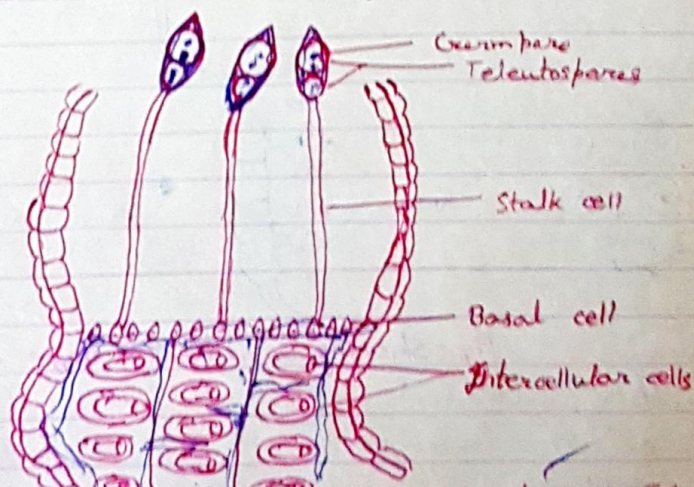 Germ pore
Teleutospores
Stalk cell
Basal cell
Intercellular cells